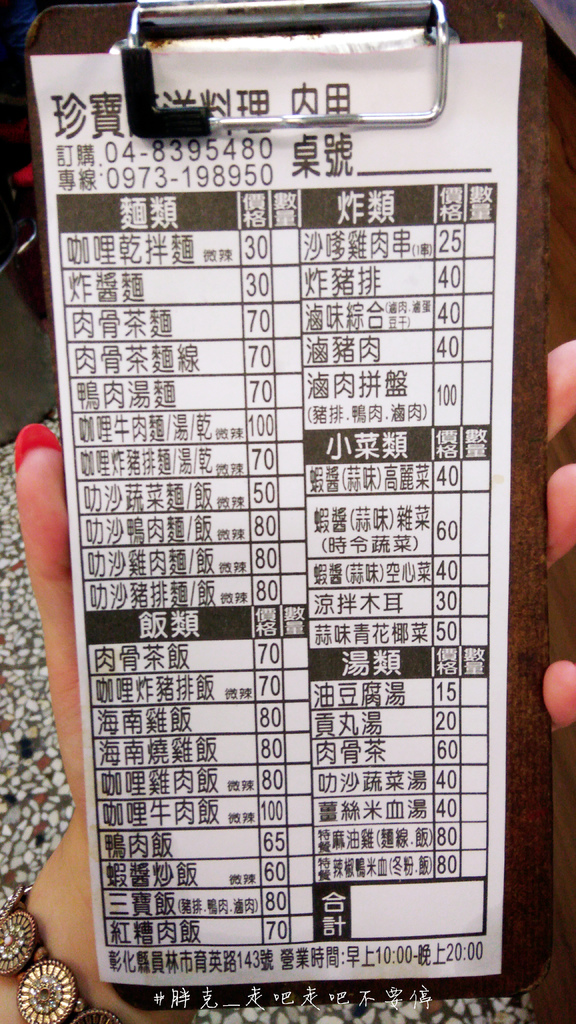 珍寶 料理 內用
訂購 04-8395480 桌號
專線:0973-198950
麵類 價格 數量
咖哩乾拌麵 微辣 30
炸醬麵 30
肉骨茶麵 70
肉骨茶麵線 70
鴨肉湯麵 70
咖哩牛肉麵/湯/乾 微辣 100
咖哩炸豬排麵/湯/乾 微辣 70
叻沙蔬菜麵/飯 微辣 50
叻沙鴨肉麵/飯 微辣 80
叻沙雞肉麵/飯 微辣 80
叻沙豬排麵/飯 微辣 80
飯類 價格 數量
肉骨茶飯 70
咖哩炸豬排飯 微辣 70
海南雞飯 80
海南燒雞飯 80
咖哩雞肉飯 微辣 80
咖哩牛肉飯 微辣 100
鴨肉飯 65
蝦醬炒飯 微辣 60
三寶飯(豬排.鴨肉.滷肉) 80
紅糟肉飯 70
炸類 價格 數量
沙嗲雞肉串(1串) 25
炸豬排 40
滷味綜合(滷肉.滷蛋豆干) 40
滷豬肉 40
滷肉拼盤 100
(豬排.鴨肉.滷肉)
小菜類 價格 數量
蝦醬(蒜味)高麗菜 40
蝦醬(蒜味)雜菜 60
(時令蔬菜)
蝦醬(蒜味)空心菜 40
涼拌木耳 30
蒜味青花椰菜 50
湯類 價格 數量
油豆腐湯 15
貢丸湯 20
肉骨茶 60
叻沙蔬菜湯 40
薑絲米血湯 40
特餐 麻油雞(麵線.飯) 80
特餐 辣椒鴨米血(冬粉.飯) 80
合計
彰化縣員林市育英路143號 營業時間:早上10:00-晚上20:00
#胖克_走吧走吧不要停